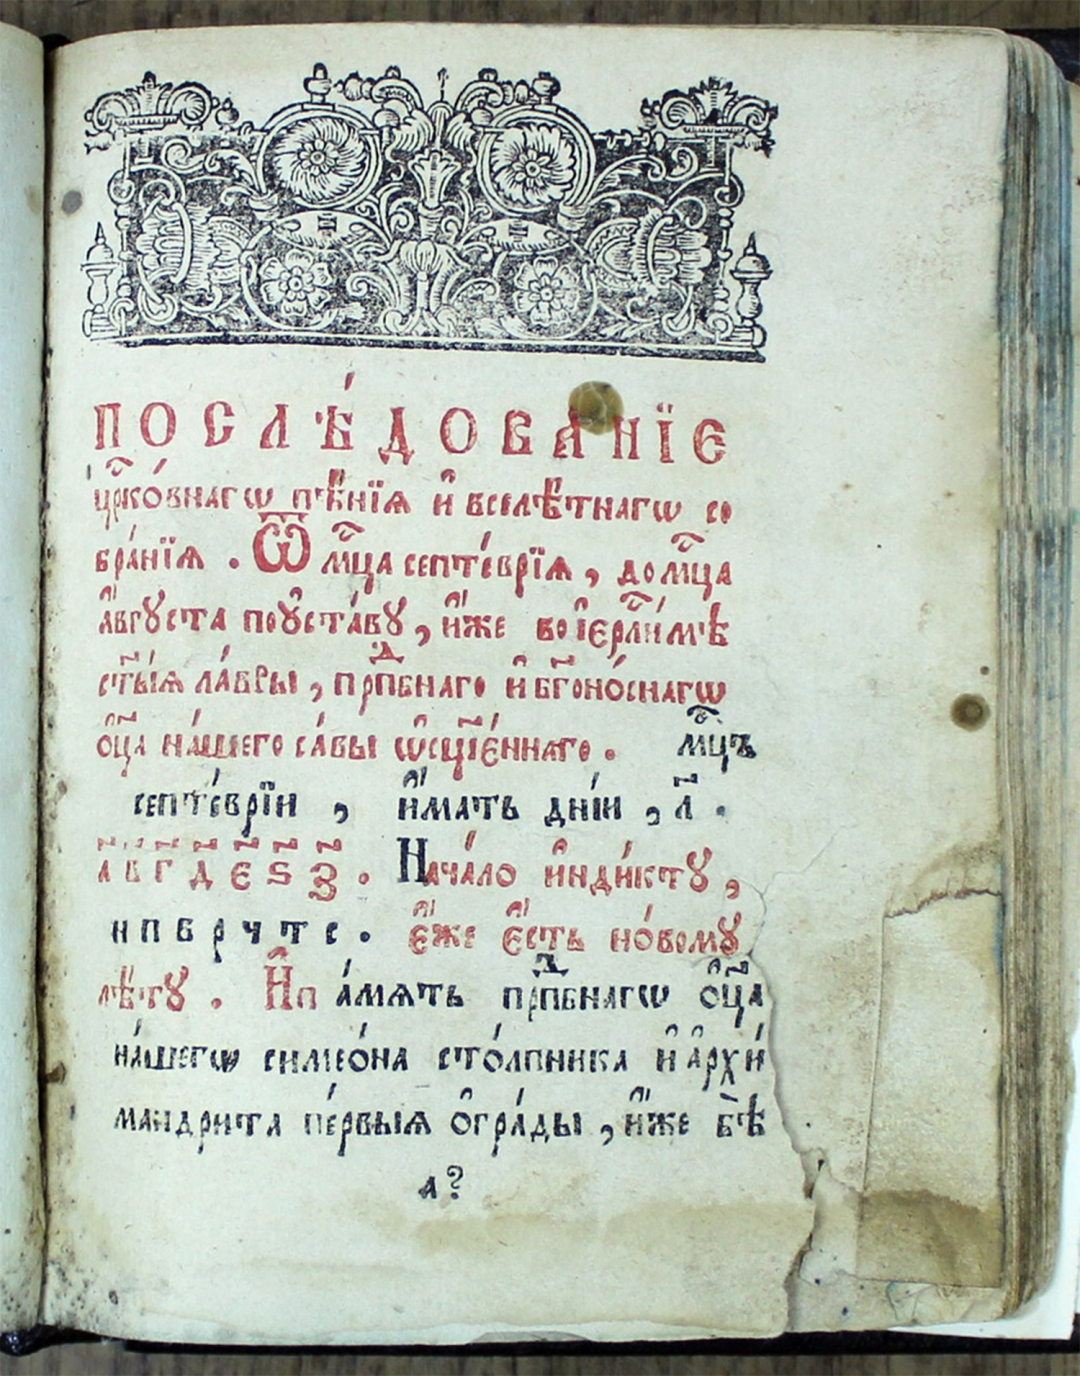 ПОСЛѢ́ДОВАНЇЕ
цр҃ко́внагѡ пѣ́нїѧ и҆ вселѣ́тнагѡ со
бра́нїѧ . Ѿ мц҃а септе́врїѧ , до мц҃а
а҆́вгꙋста по ᲂу҆ста́вꙋ , и҆́же во і҆ерⷭ҇ли́мѣ
ст҃ы́ѧ ла́вры , прпⷣбнаго и҆ бг҃оно́снагѡ
ѻ҆ц҃а на́шего са́вы ѡ҆сщ҃е́ннаго . мц҃ъ
септе́врїи , и҆́мать дні́и , л҃ .
а҃ в҃ г҃ д҃ є҃ ѕ҃ з҃ . Нача́ло и҆нді́ктꙋ ,
н п в р ч т с . є҆́же є҆́сть но́вомꙋ
лѣ́тꙋ . И҆ п а́мѧть прпⷣбнагѡ ѻ҆ц҃а
на́шегѡ симео́на сто́лпника и҆ а҆рхи́
мандрита пе́рвыѧ ѻ҆гра́ды , и҆́же бѣ̀
а ?